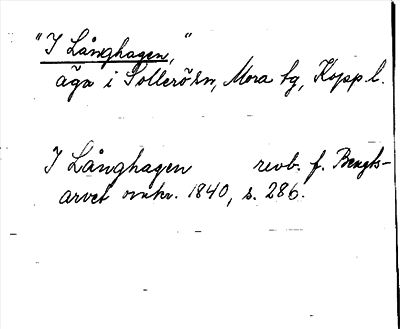 "I Långhagen,"
äga i Sollerön, Mora tg, Kopp l.
I Långhagen revb. f. Bengts-
arvet omkr. 1840, s. 286.